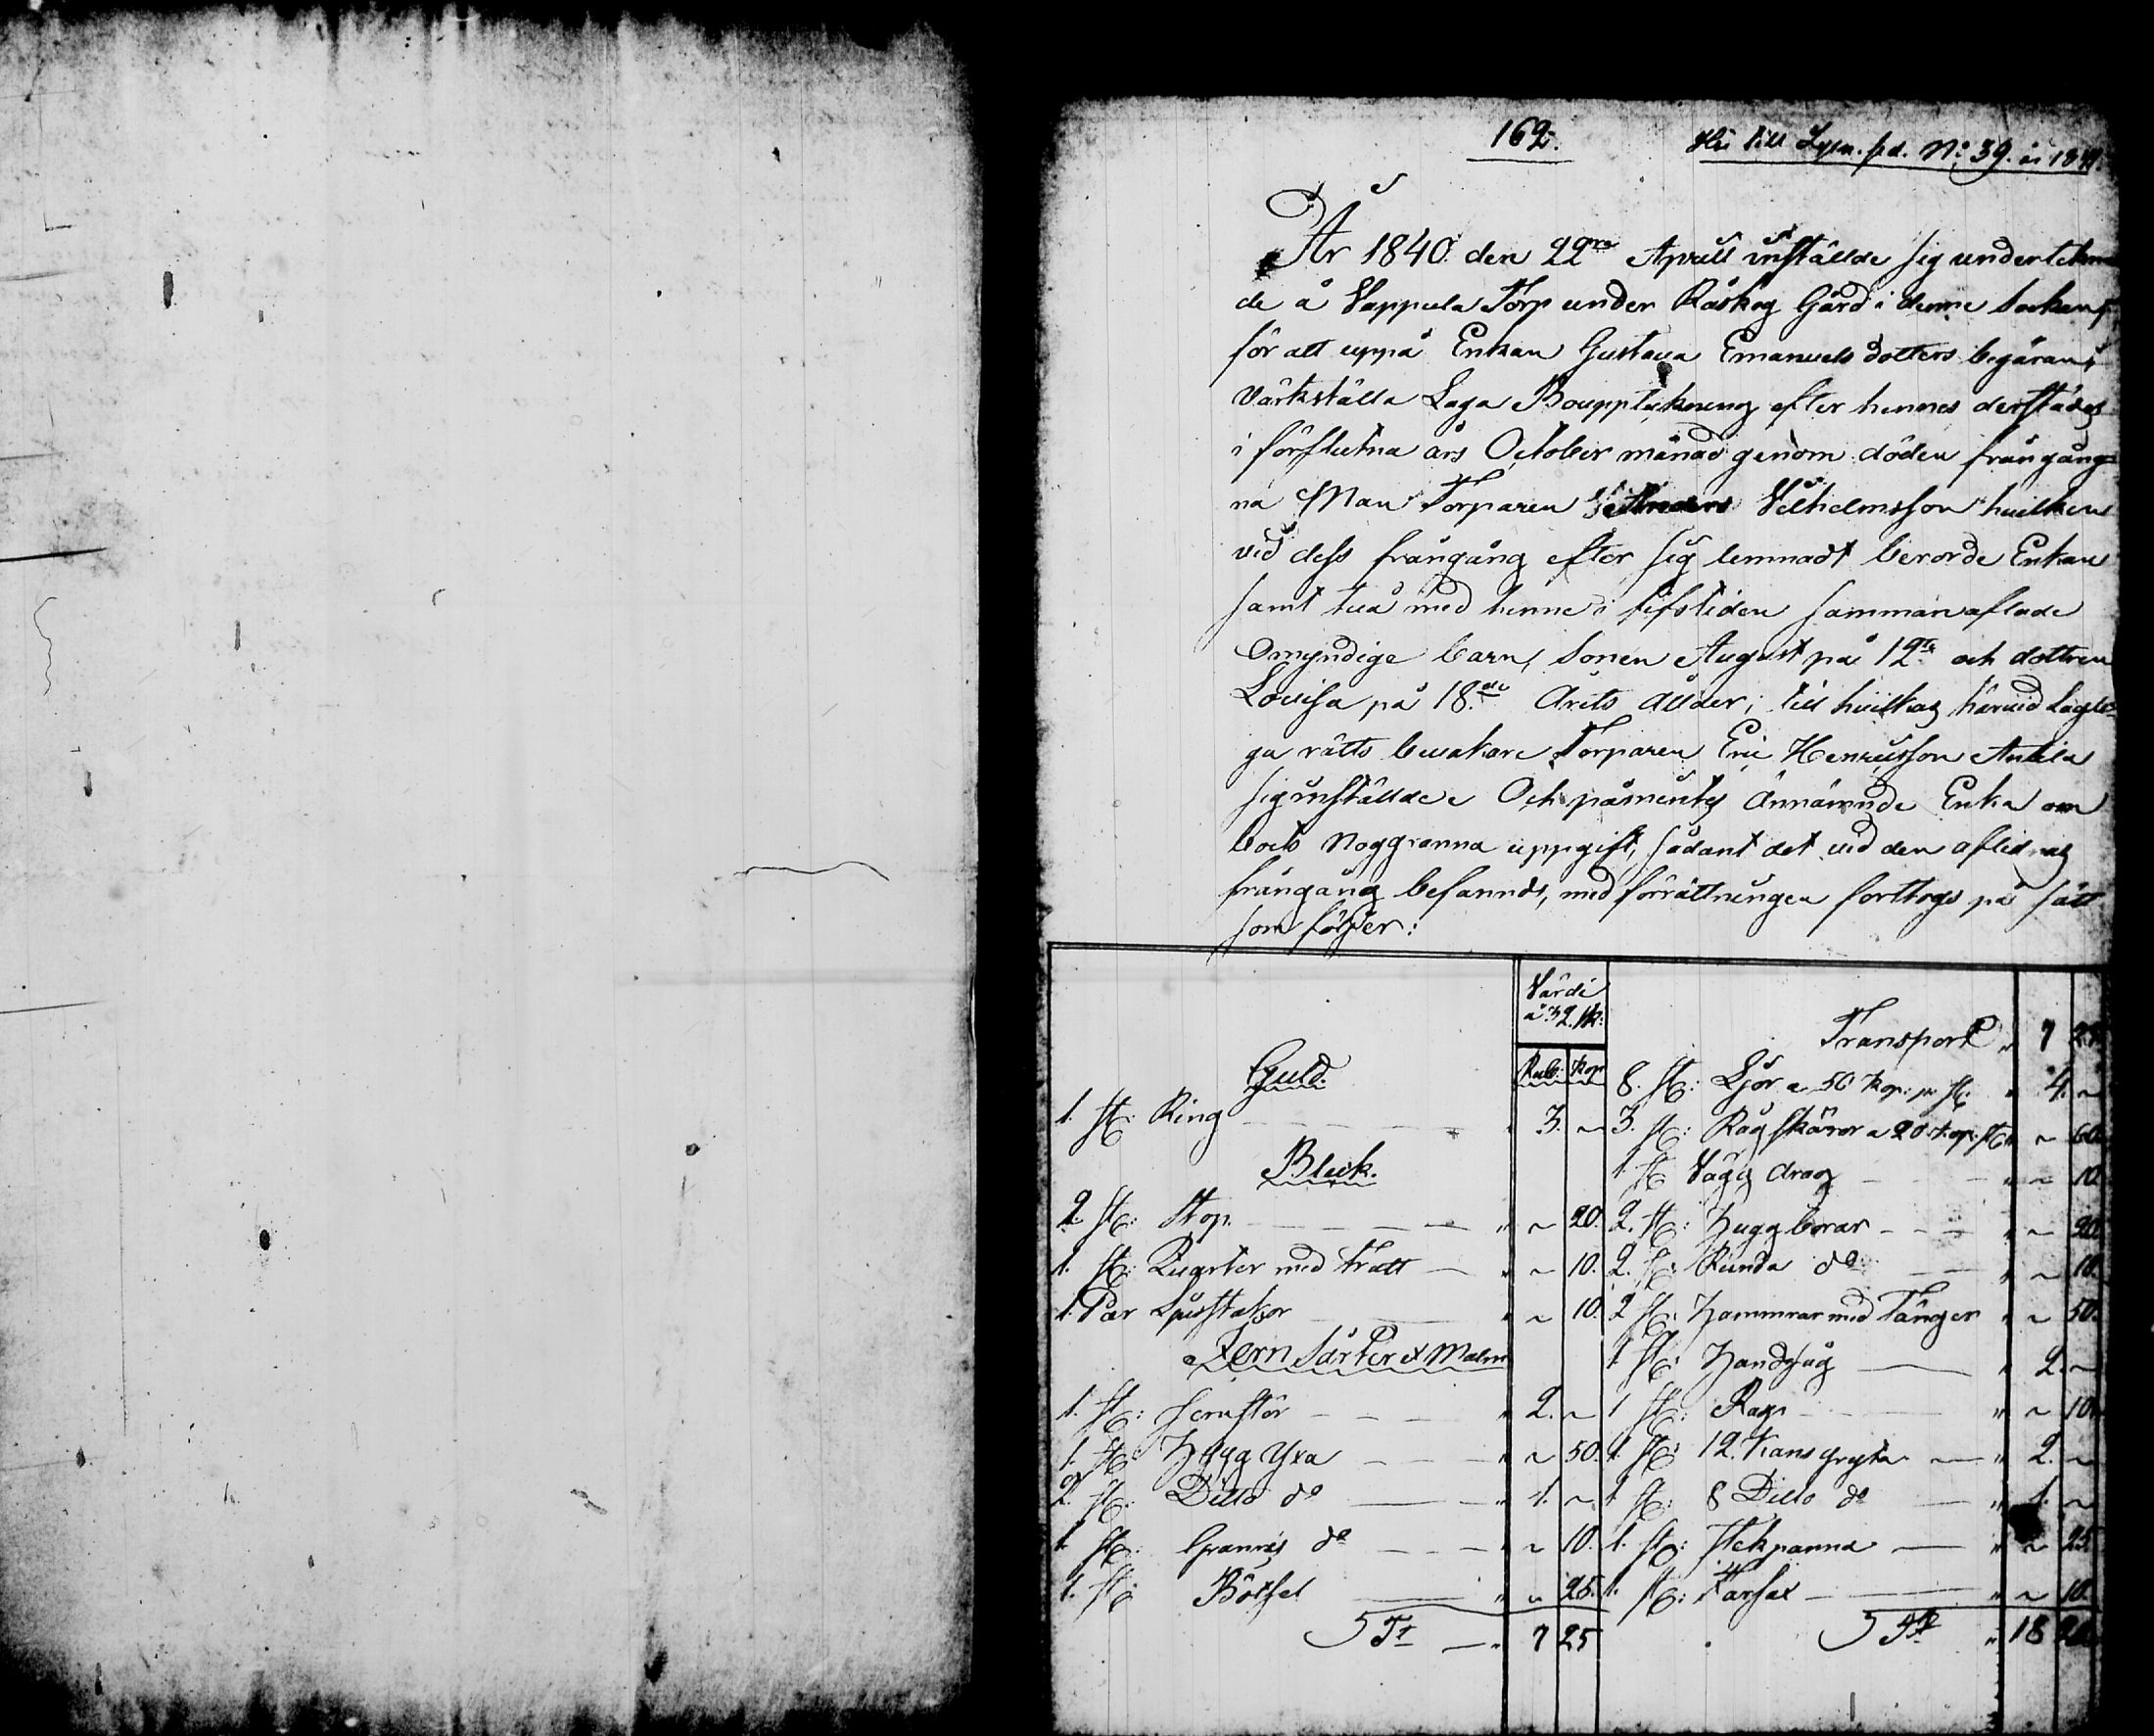 162.
till No 39. år 1841.
År 1840 den 22ra Aprill instälde sig underteckna
de å Vappula Torp under Råskog Gård i denne Socken,
för att uppå Enkan Gustava Emanuels dotters begäran,
värkställa Laga Boupptekning efter hennes derstädes
i förflutna års October månad genom döden frångång
na Man Torparen Anders Vilhelmsson hvilken
vid dess frångång efter sig lemnadt berörde Enkan
samt två med henne i lifstiden sammanaflade
Omyndige barn, Sonen August på 12te och dottren
Lovisa på 18de Årets Ållder; till hvilkas härvid lagli-
ga rätts bevakare Torparen Eric Henricsson Anttila
sig instälde. Och påmintes Ännämnde Enka om
boets noggranna uppgift, sådant det vid den aflidnas
frångång befannds, med förrättningen forttogs på sätt
som följer:
Värde
Rub: Kop
Guld.
1. st: Ring " 3. ~
Bleck.
2 st: Stop " ~ 20.
1. st: Quarter med Tratt " ~ 10.
1. Par Ljusstakar " ~ 10.
Jern Sårter et Malm
1. st: Jernstör " 2. ~
1. st: Hygg Yxa " ~ 50.
2. st: Ditto do " 1. ~
1 st: Granris do " ~ 10.
1. st: Bötsel " ~ 25.
Str " 7 25
Transport " 7 25
8. st: Ljor a 50 kop: pr st: " 4. ~
3. st: Rågskäror a 20 kop: st " ~ 60.
1 st Vägg drag " ~ 10.
2. st: Hugg borar " ~ 20
2. st: Runda do " ~ 10.
2 st: Hammrar med Tänger " ~ 50.
1 st: Handsåg " 2. ~
1 st: Rasp " ~ 10.
1. st: 12. Kans gryta " 2. ~
1 st: 8 Ditto do " 1. ~
1. st: Stekpanna " ~ 25
1. st: Farsax " ~ 10.
Str " 18